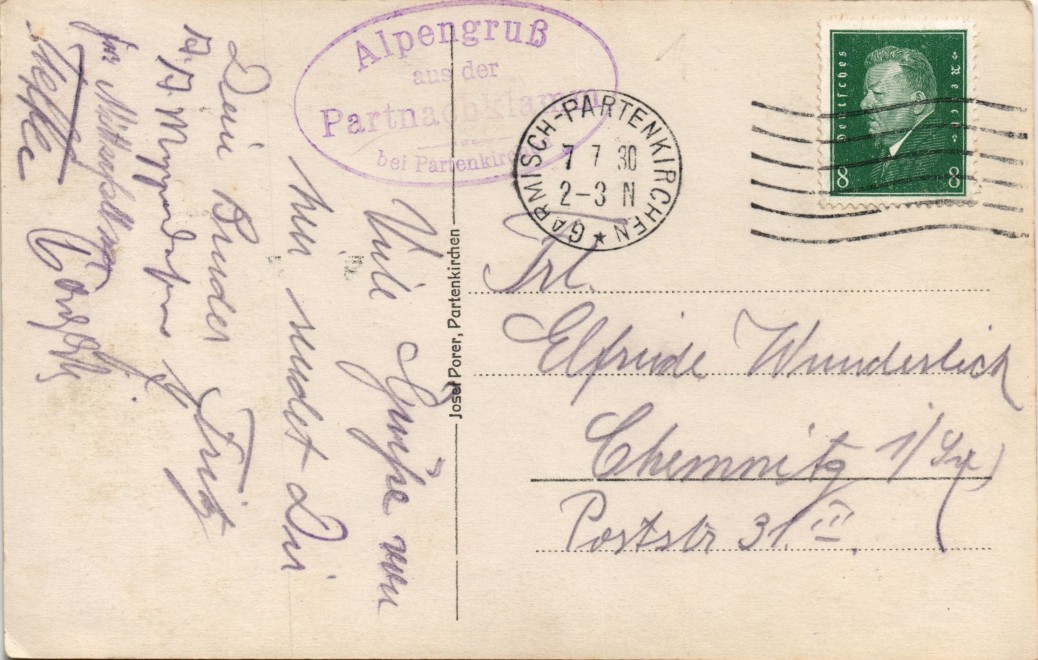 Alpengruß
aus der
Partnachklamm
bei Partenkirchen
GARMISCH-PARTENKIRCHEN
7 7 30
2-3 N
Deutsches Reich
8 8
Josef Porer, Partenkirchen
Frl.
Elfriede Wunderlich
Chemnitz i/Sa
Poststr 31 III.
Viele Grüße von
hier sendet Dir
Dein Bruder Fritz